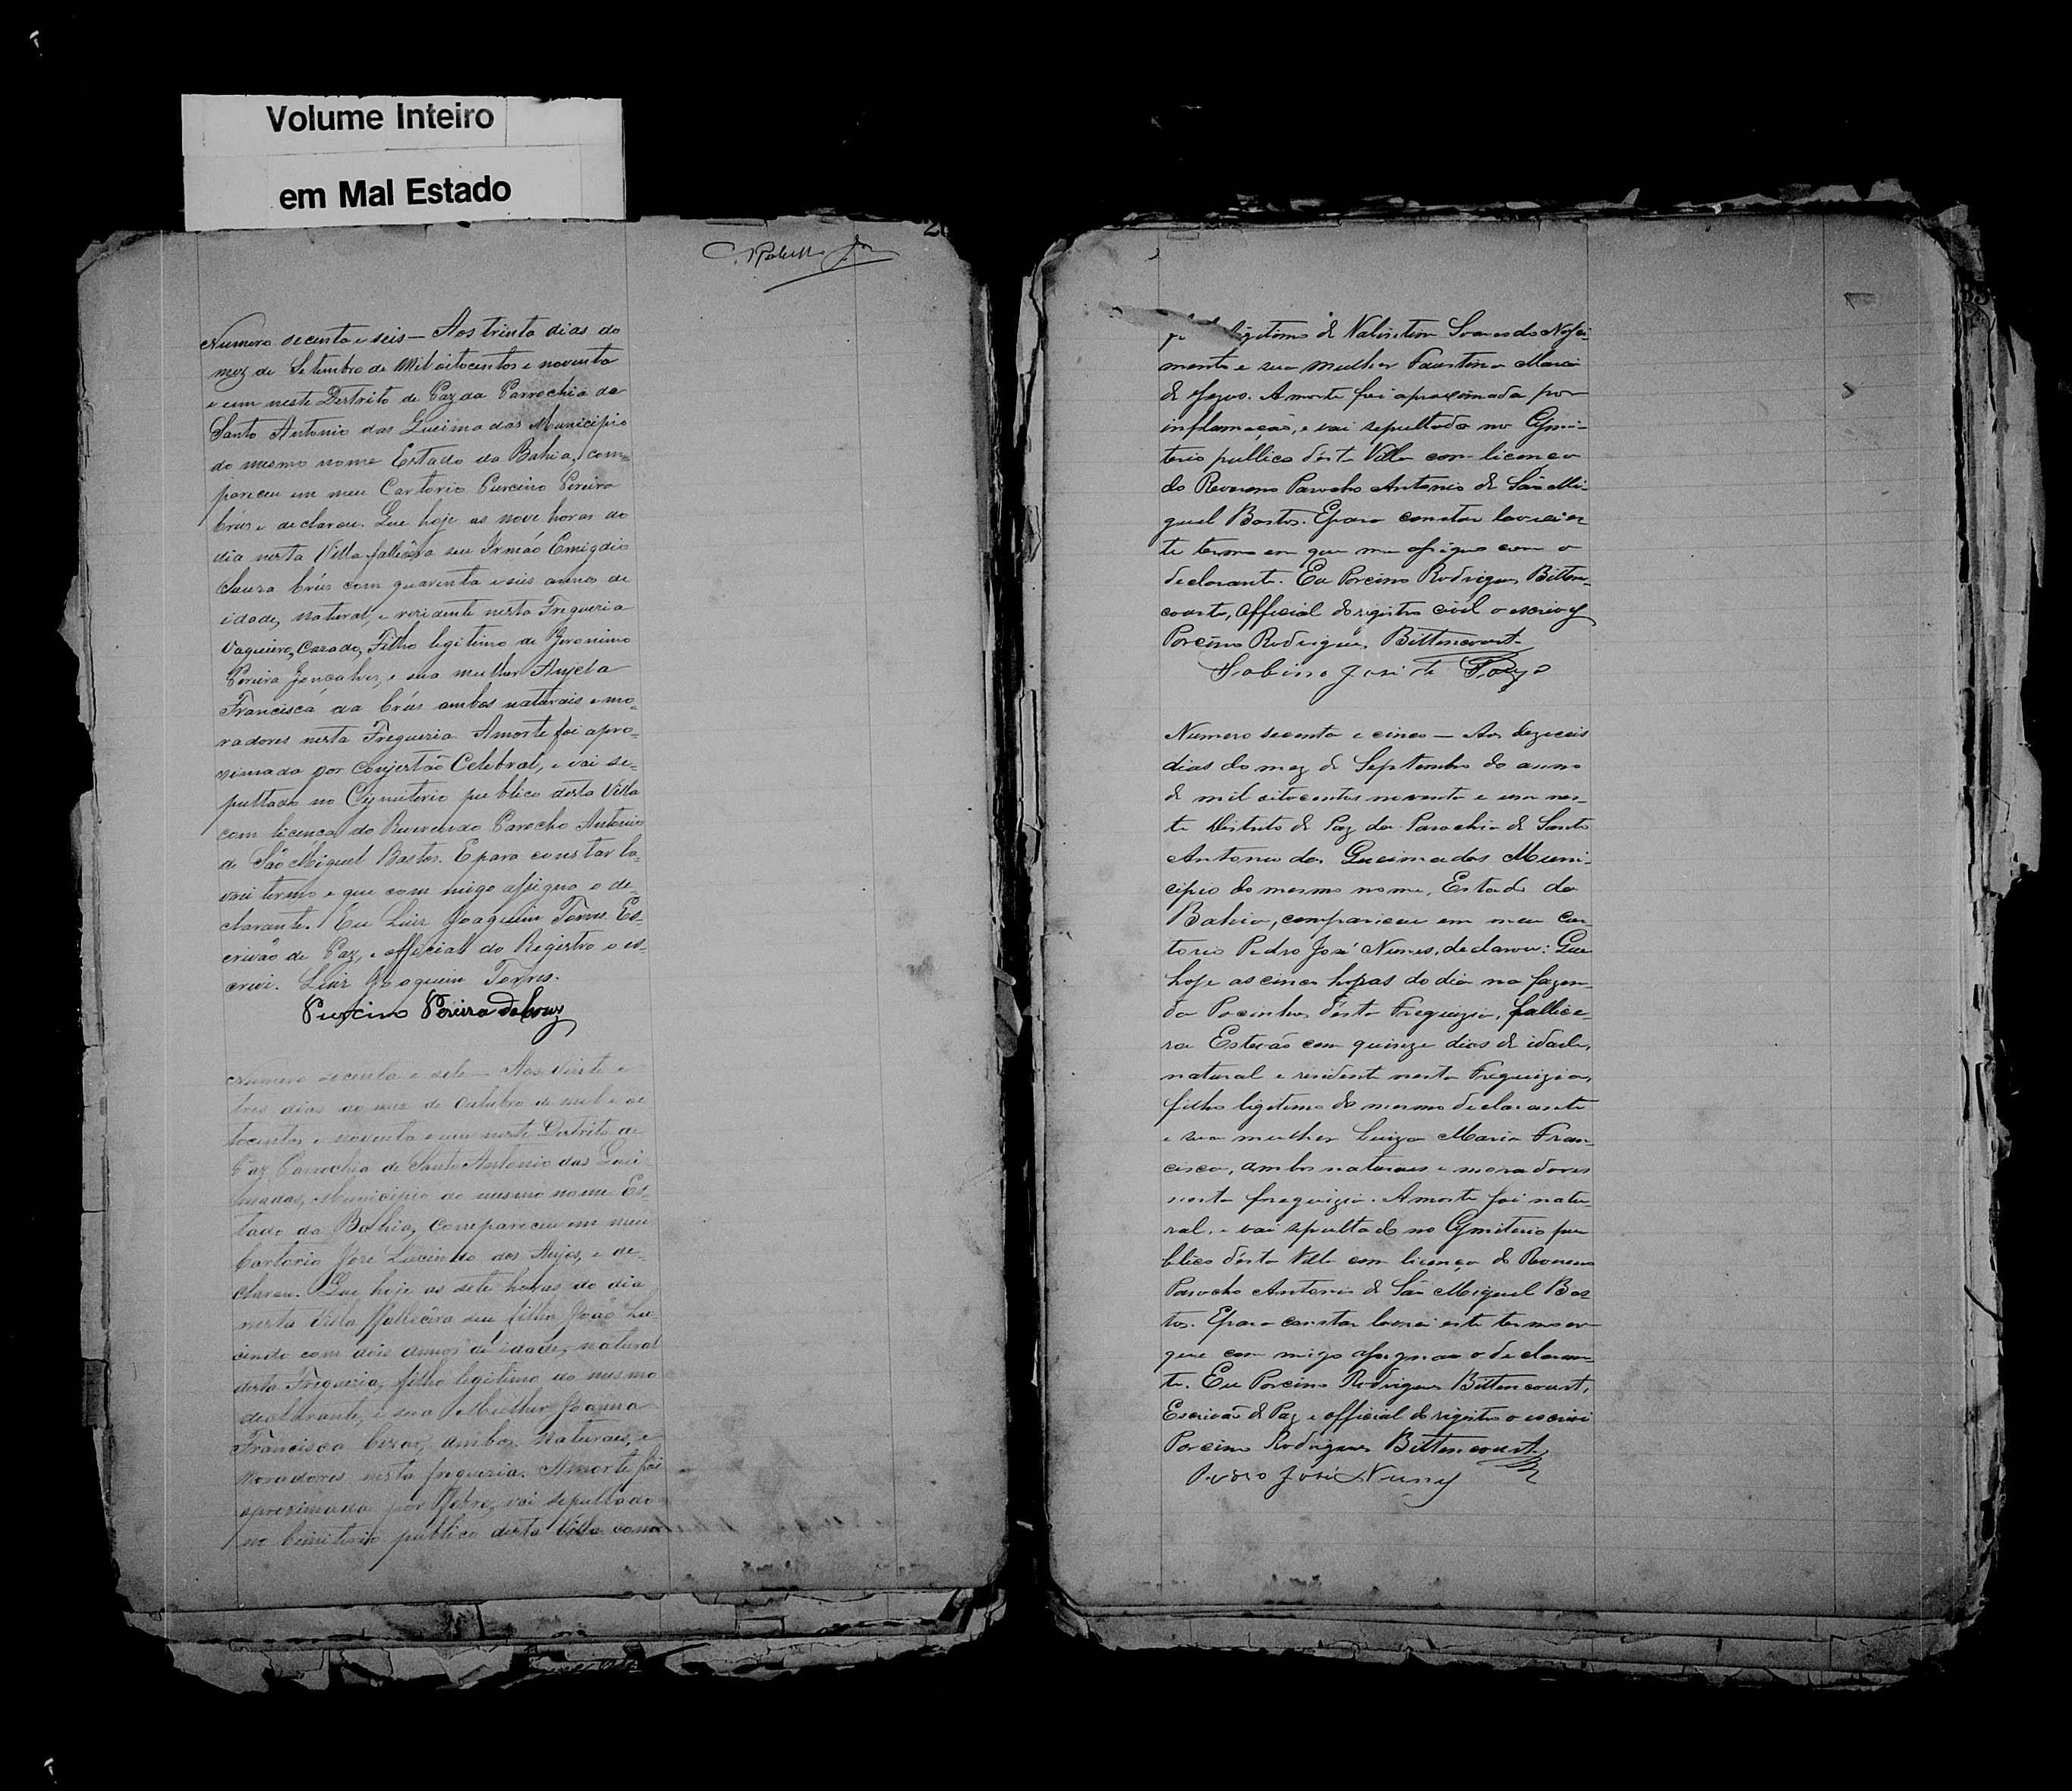 Volume Inteiro
em Mal Estado
Numero secenta e seis — Aos trinta dias do
mez de Setembro de Mil oitocentos e noventa
e um neste Destrito de Paz da Parrochia de
Santo Antonio das Queimadas Municipio
do mesmo nome Estado da Bahia, com-
pareceu em meu Cartorio Purcino Pereira
Crús e declarou. Que hoje as nove horas do
dia nesta Villa fallecêra seu Irmão Emigdio
Crús com quarenta e seis annos de
idade, natural, e residente nesta Freguezia
Vaqueiro, Cazado, Filho legitimo de Geronimo
Pereira Gonçalves, e sua mulher Anjela
Francisca da Crús ambos naturais e mo-
radores nesta Freguezia. Amorte foi apro-
ximada por Conjestão Celebral, e vai se-
pultado no Cymiterio publico desta Villa
com licença do Reverendo Parocho Antonio
de São Miguel Bastos. E para constar la-
vrei termo e que com migo assigno o de-
clarante. Eu Luiz Joaquim Torres. Es-
crivão de Paz, e official do Registro o es-
crivi. Luiz Joaquim Torres.
Purcino Pereira da Cruz
Numero secenta e sete — Aos vinte e
tres dias do mez de Outubro de mil e oi
tocentos e noventa e um neste Destrito de
Paz Parrochia de Santo Antonio das Quei
madas, Municipio do mesmo nome Es-
tado da Bahia, Compareceu em meu
Cartorio José Lucindo dos Anjos, e de-
clarou. Que hoje as sete horas do dia
nesta Villa fallecêra seu filho João Lu
cindo com dois annos de idade, natural
desta Freguezia, filho legitimo do mesmo
declarante, e sua Mulher Joanna
Francisca ambos Naturaes, e
Moradores nesta freguezia. Amorte foi
aproximada por febre, vai sepultado
no Cimiterio publico desta Villa com
legitimo de Valintim Soares do Nasci-
mento e sua mulher Faustina Maria
de Jezus. A morte foi aproximada por
inflamação, e vai sepultada no Cymi-
terio publico désta Villa com licença
do Reverend Parocho Antonio de São Mi-
guel Bastos. Epara constar lavrei es
te termo em que me assigno com o
declarante. Eu Porcino Rodrigues Bitten-
court, Official do registro civil o escrivy
Porcino Rodrigues Bittencourt
Sabino José de
Numero secenta e cinco — Aos dezeceis
dias do mez de Septembro do anno
de mil oitocentos noventa e um nes-
te Distrito de Paz da Parochia de Santo
Antonio das Queimadas Muni-
cipio do mesmo nome, Estado da
Bahia, compareceu em meu Car
torio Pedro José Nunes, declarou: Que
hoje as cinco horas do dia na fazen-
da Pocinhos désta Freguizia, fallice-
ra Estevão com quinze dias de idade,
natural e residente nesta Freguizia,
filho ligitimo do mesmo declarante
e sua mulher Luiza Maria Fran-
cisca, ambos naturaes e moradores
nesta freguizia. A morte foi natu-
ral, e vai sepultado no Cymiterio pu
blico désta Villa com licença do Reveren
Parocho Antonio de São Miguel Bas-
tos. Epara constar lavrei este termo em
que com migo assigna o declaran-
te. Eu Porcino Rodrigues Bittencourt,
Escrivão de Paz e official do rigistro o escrivi
Porcino Rodrigues Bittencourt
Pedro José Nunes